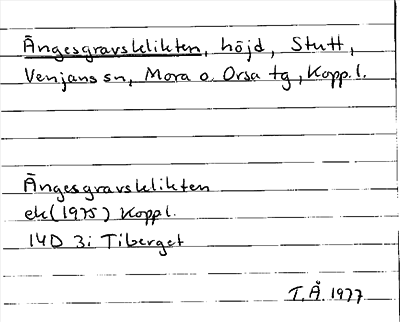 Ängesgravsklikten, höjd, Stutt,
Venjans sn, Mora o. Orsa tg, Kopp. l.
Ängesgravsklikten
ek (1975) Koppl.
14D 3i Tiberget
T. Å. 1977